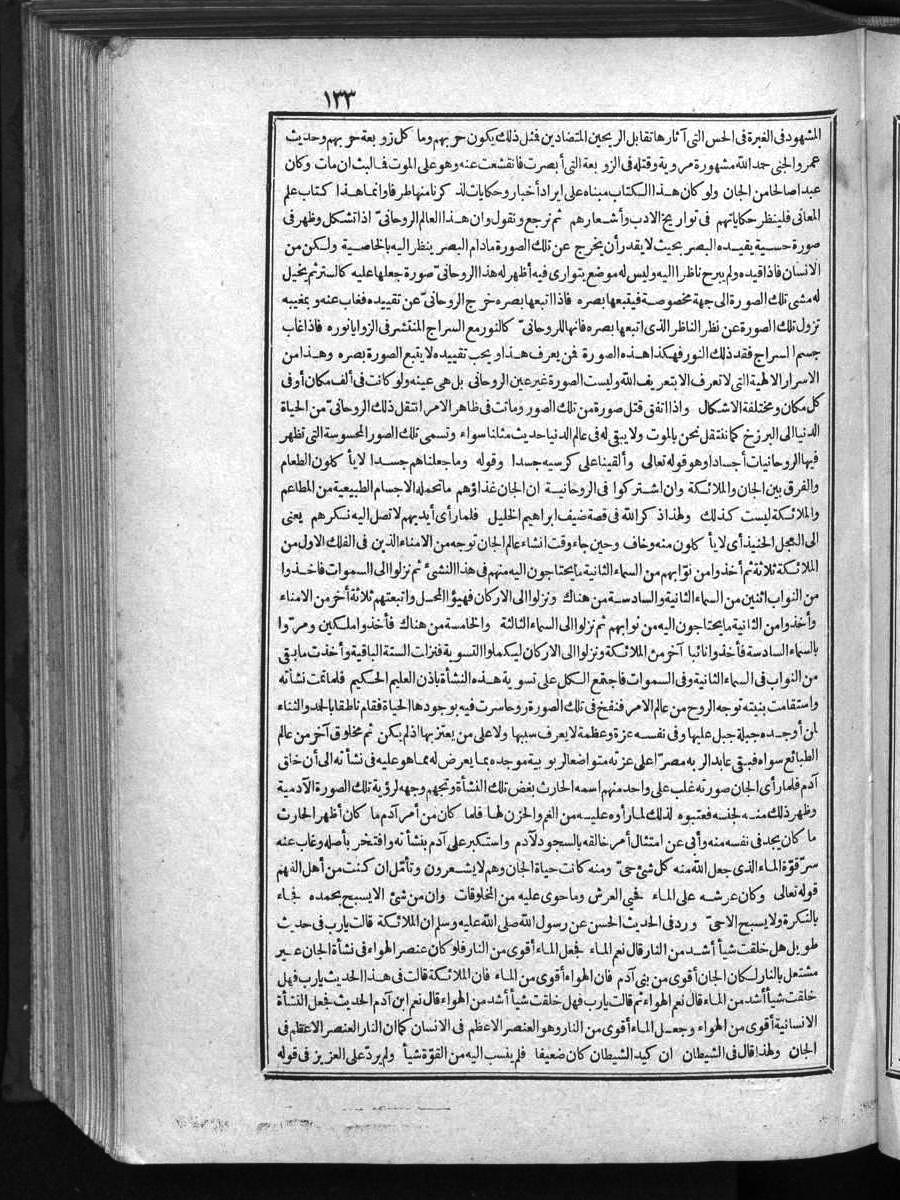 ١٣٣
المشهود فى الغبرة فى الحس التى آثارها تقابل الريحين المتضادين فمثل ذلك يكون حربهم وما كل زوبعة حربهم وحديث
عمرو الجنى حمد الله مشهورة مروية وقتله فى الزوبعة التى أبصرت فانقشعت عنه وهو على الموت فما لبث ان مات وكان
عبدا صالحا من الجان ولو كان هذا الكتاب مبناه على ايراد أخبار وحكايات لذكرنا منها طرفا وانما هذا كتاب علم
المعانى فلينظر حكاياتهم فى تواريخ الادب وأشعارهم ثم نرجع ونقول وان هذا العالم الروحانىّ اذا تشكل وظهر فى
صورة حسية يقيده البصر بحيث لا يقدر أن يخرج عن تلك الصورة مادام البصر ينظر اليه بالخاصية ولكن من
الانسان فاذا قيده ولم يبرح ناظرا اليه وليس له موضع يتوارى فيه أظهر له هذا الروحانىّ صورة جعلها عليه كالستر ثم يخيل
له مشى تلك الصورة الى جهة مخصوصة فيتبعها بصره فاذا اتبعها بصره خرج الروحانىّ عن تقييده فغاب عنه وبمغيبه
تزول تلك الصورة عن نظر الناظر الذى اتبعها بصره فانها للروحانىّ كالنور مع السراج المنتشر فى الزوايا نوره فاذا غاب
جسم السراج فقد ذلك النور فهكذا هذه الصورة فمن يعرف هذا ويحب تقييده لا يتبع الصورة بصره وهذا من
الاسرار الالهية التى لا تعرف الا بتعريف الله وليست الصورة غير عين الروحانى بل هى عينه ولو كانت فى ألف مكان أو فى
كل مكان ومختلفة الاشكال واذا اتفق قتل صورة من تلك الصور وماتت فى ظاهر الامر انتقل ذلك الروحانىّ من الحياة
الدنيا الى البرزخ كما ننتقل نحن بالموت ولا يبقى له فى عالم الدنيا حديث مثلنا سواء وتسمى تلك الصور المحسوسة التى تظهر
فيها الروحانيات أجسادا وهو قوله تعالى وألقينا على كرسيه جسدا وقوله وما جعلناهم جسدا لا يأكلون الطعام
والفرق بين الجان والملائكة وان اشتركوا فى الروحانية ان الجان غذاؤهم ما تحمله الاجسام الطبيعية من المطاعم
والملائكة ليست كذلك ولهذا ذكر الله فى قصة ضيف ابراهيم الخليل فلما رأى أيديهم لا تصل اليه نكرهم يعنى
الى العجل الحنيذ أى لا يأكلون منه وخاف وحين جاء وقت انشاء عالم الجان توجه من الامناء الذين فى الفلك الاول من
الملائكة ثلاثة ثم أخذوا من نوّابهم من السماء الثانية ما يحتاجون اليه منهم فى هذا النشئ ثم نزلوا الى السموات فاخذوا
من النواب اثنين من السماء الثانية والسادسة من هناك ونزلوا الى الاركان فهيؤا المحل واتبعتهم ثلاثة أخر من الامناء
وأخذوا من الثانية ما يحتاجون اليه من نوابهم ثم نزلوا الى السماء الثالثة والخامسة من هناك فأخذوا ملكين ومرّوا
بالسماء السادسة فأخذوا نائبا آخر من الملائكة ونزلوا الى الاركان ليكملوا التسوية فنزلت الستة الباقية وأخذت ما بقى
من النواب فى السماء الثانية وفى السموات فاجتمع الكل على تسوية هذه النشأة باذن العليم الحكيم فلما تمت نشأته
واستقامت بنيته توجه الروح من عالم الامر فنفخ فى تلك الصورة روحا سرت فيه بوجودها الحياة فقام ناطقا بالحمد والثناء
لمن أوجده جبلة جبل عليها وفى نفسه عزة وعظمة لا يعرف سببها ولا على من يعتز بها اذ لم يكن ثم مخلوق آخر من عالم
الطبائع سواه فبقى عابدا لربه مصرّا على عزته متواضعا لربوبية موجده بما يعرض له مما هو عليه فى نشأته الى أن خلق
آدم فلما رأى الجان صورته غلب على واحد منهم اسمه الحارث بغض تلك النشأة وتجهم وجهه لرؤية تلك الصورة الآدمية
وظهر ذلك منه لجنسه فعتبوه لذلك لما رأوه عليه من الغم والحزن لها فلما كان من أمر آدم ما كان أظهر الحارث
ما كان يجد فى نفسه منه وأبى عن امتثال أمر خالقه بالسجود لآدم واستكبر على آدم بنشأته وافتخر بأصله وغاب عنه
سرّ قوّة الماء الذى جعل الله منه كل شئ حىّ ومنه كانت حياة الجان وهم لا يشعرون وتأمّل ان كنت من أهل الفهم
قوله تعالى وكان عرشه على الماء فحيى العرش وما حوى عليه من المخلوقات وان من شئ الا يسبح بحمده فجاء
بالنكرة ولا يسبح الا حىّ ورد فى الحديث الحسن عن رسول الله صلى الله عليه وسلم ان الملائكة قالت يارب فى حديث
طويل هل خلقت شيأ أشد من النار قال نعم الماء فجعل الماء أقوى من النار فلو كان عنصر الهواء فى نشأة الجان غير
مشتعل بالنار لكان الجان أقوى من بنى آدم فان الهواء أقوى من الماء فان الملائكة قالت فى هذا الحديث يارب فهل
خلقت شيأ أشد من الماء قال نعم الهواء ثم قالت يارب فهل خلقت شيأ أشد من الهواء قال نعم ابن آدم الحديث فجعل النشأة
الانسانية أقوى من الهواء وجعل الماء أقوى من النار وهو العنصر الاعظم فى الانسان كما ان النار العنصر الاعظم فى
الجان ولهذا قال فى الشيطان ان كيد الشيطان كان ضعيفا فلم ينسب اليه من القوّة شيأ ولم يردّ على العزيز فى قوله